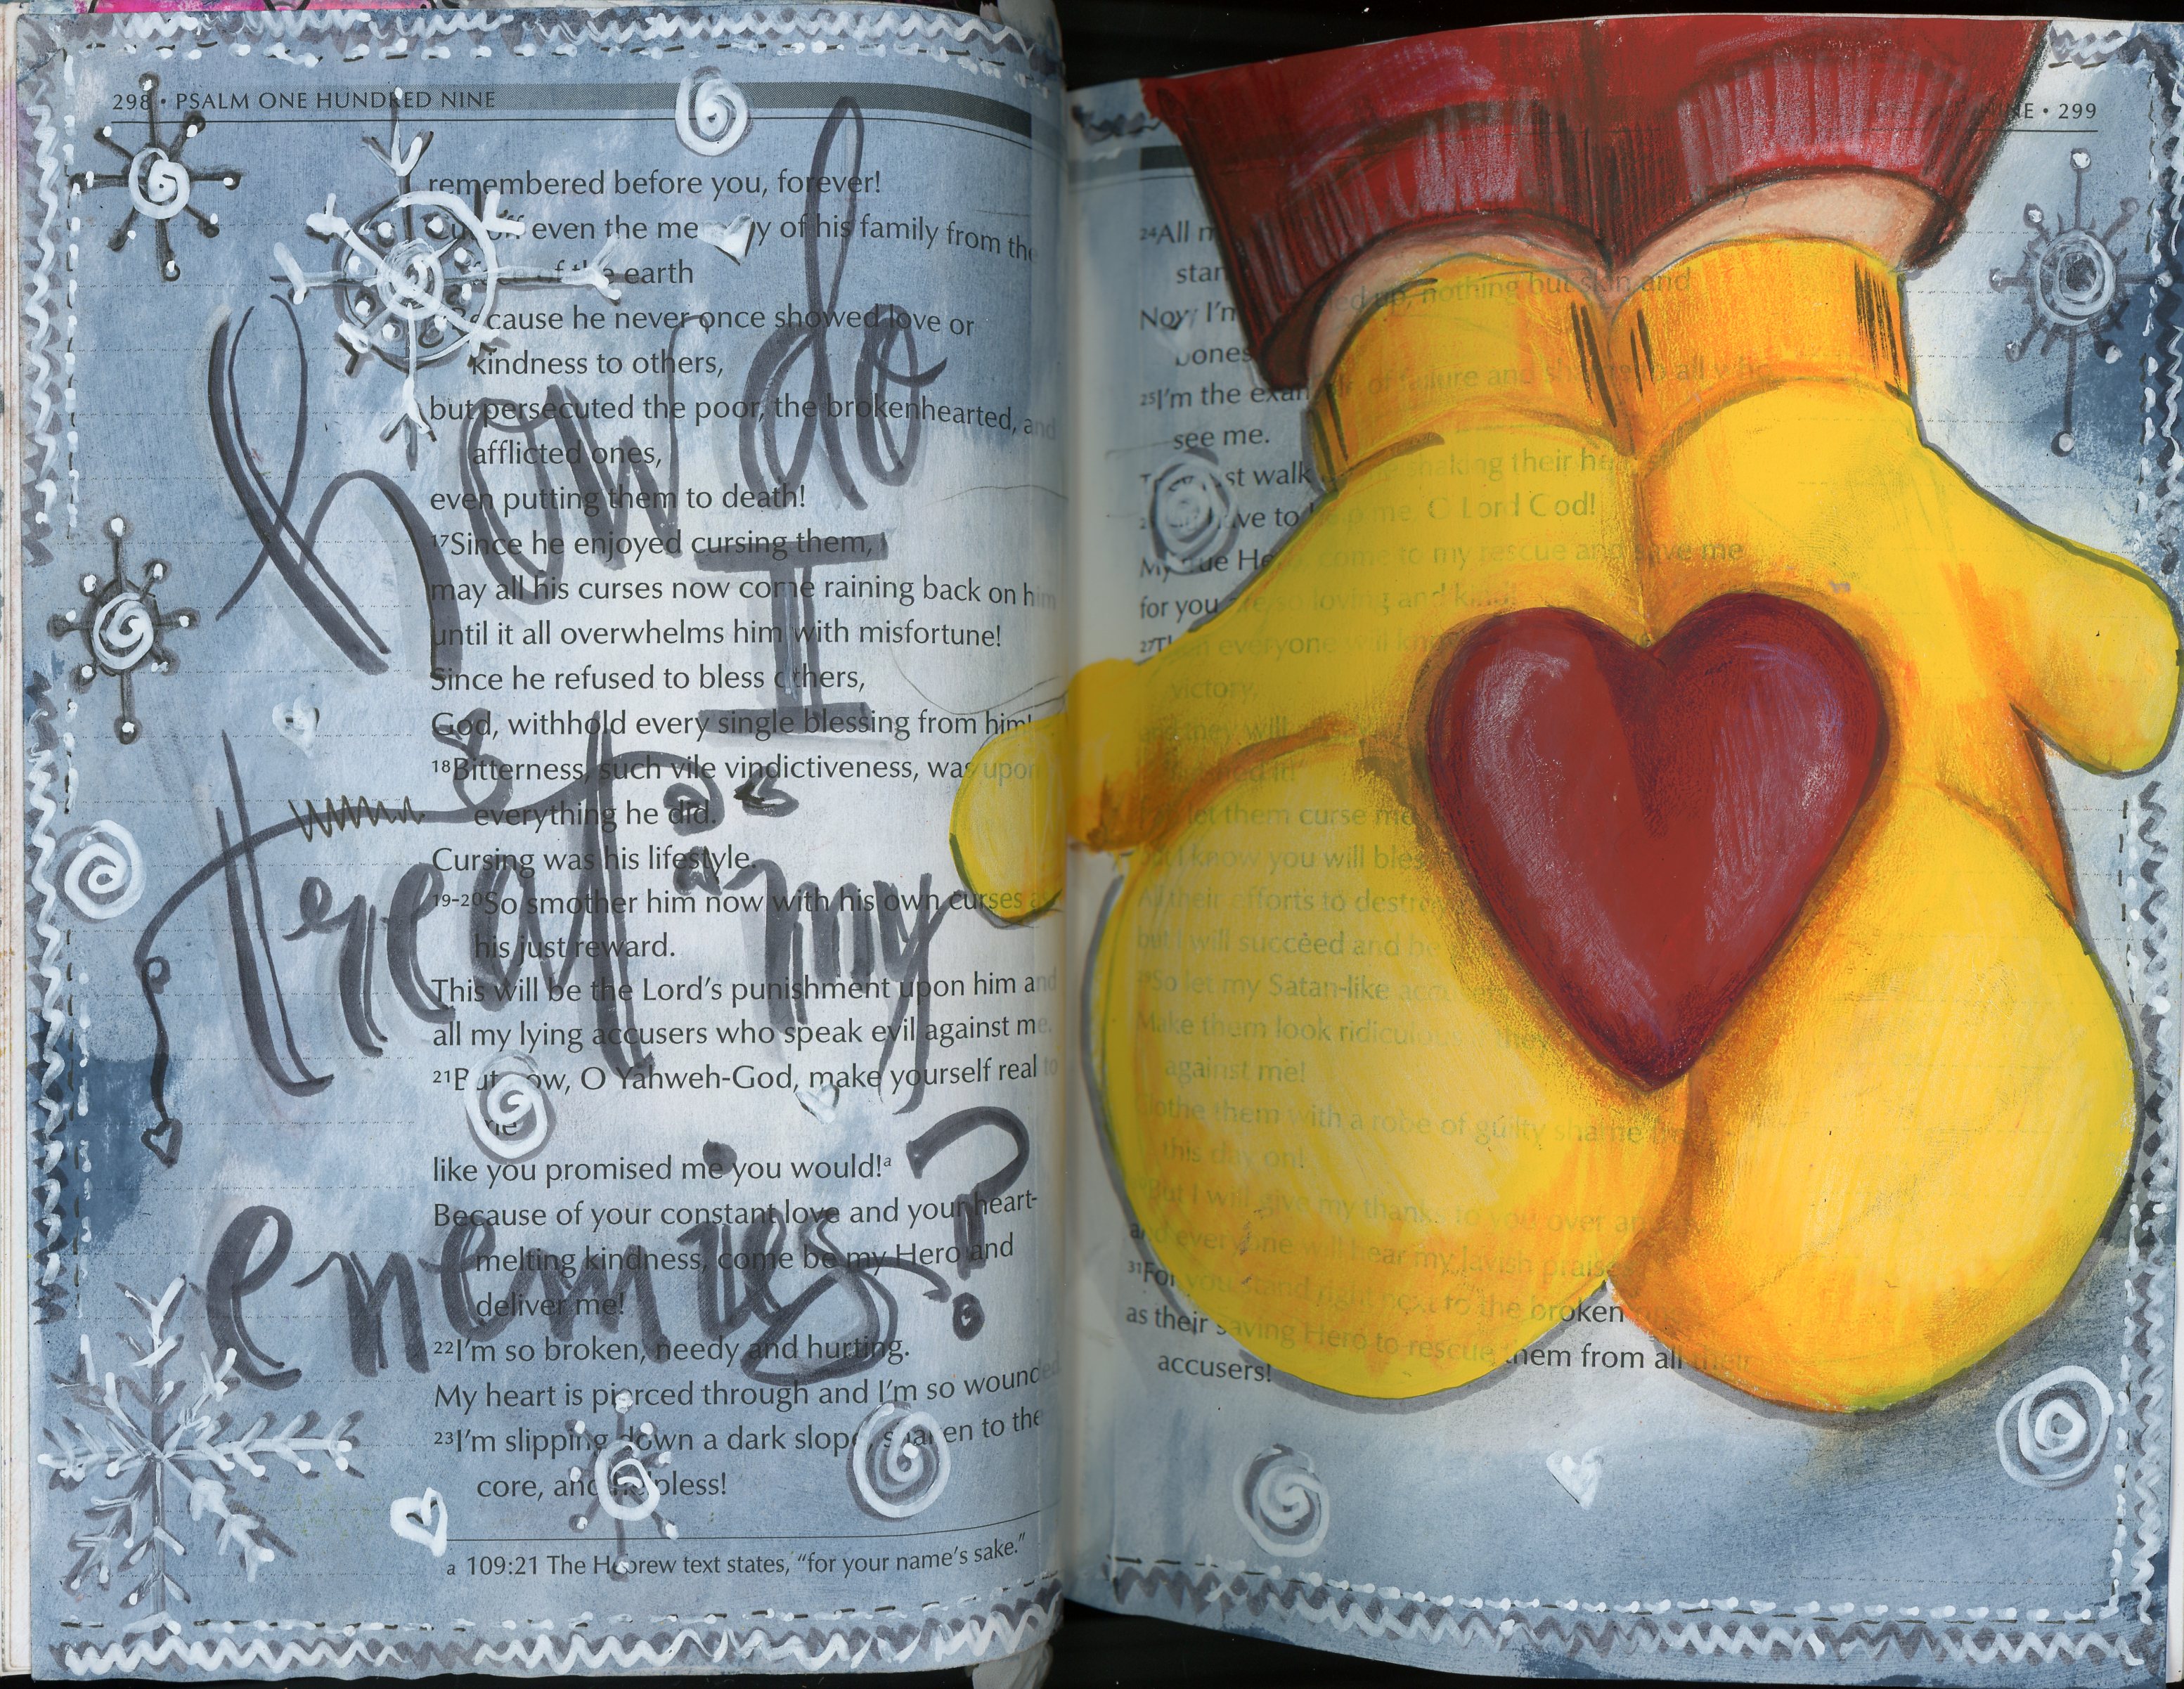 298 • PSALM ONE HUNDRED NINE
remembered before you, forever!
even the memory of his family from the
of the earth
Because he never once showed love or
kindness to others,
but persecuted the poor, the brokenhearted, and
afflicted ones,
even putting them to death!
17Since he enjoyed cursing them,
may all his curses now come raining back on him
until it all overwhelms him with misfortune!
Since he refused to bless others,
God, withhold every single blessing from him!
18Bitterness, such vile vindictiveness, was upon
everything he did.
Cursing was his lifestyle.
19-20So smother him now with his own curses as
his just reward.
This will be the Lord's punishment upon him and
all my lying accusers who speak evil against me.
21But now, O Yahweh-God, make yourself real to
me
like you promised me you would!a
Because of your constant love and your heart-
melting kindness, come be my Hero and
deliver me!
22I'm so broken, needy and hurting.
My heart is pierced through and I'm so wounded
23I'm slipping down a dark slope, shaken to the
core, and helpless!
a 109:21 The Hebrew text states, "for your name's sake."
how do
I
treat my
enemies?
NINE • 299
24All
Now I'm up, nothing but skin and
bones
25I'm the example of failure and shame to all who
see me.
They just walk shaking their
have to help me, O Lord God!
My true Hero, come to my rescue and save me
for you are so loving and kind!
27Then everyone will know
victory,
and they will
let them curse me
but I know you will bless
All their efforts to destroy
but I will succeed and be
So let my Satan-like
Make them look ridiculous
against me!
Clothe them with a robe of guilty shame
this day on!
But I will give my thanks to you over and
and everyone will hear my lavish praise
31For you stand right next to the broken
as their saving Hero to rescue them from all their
accusers!